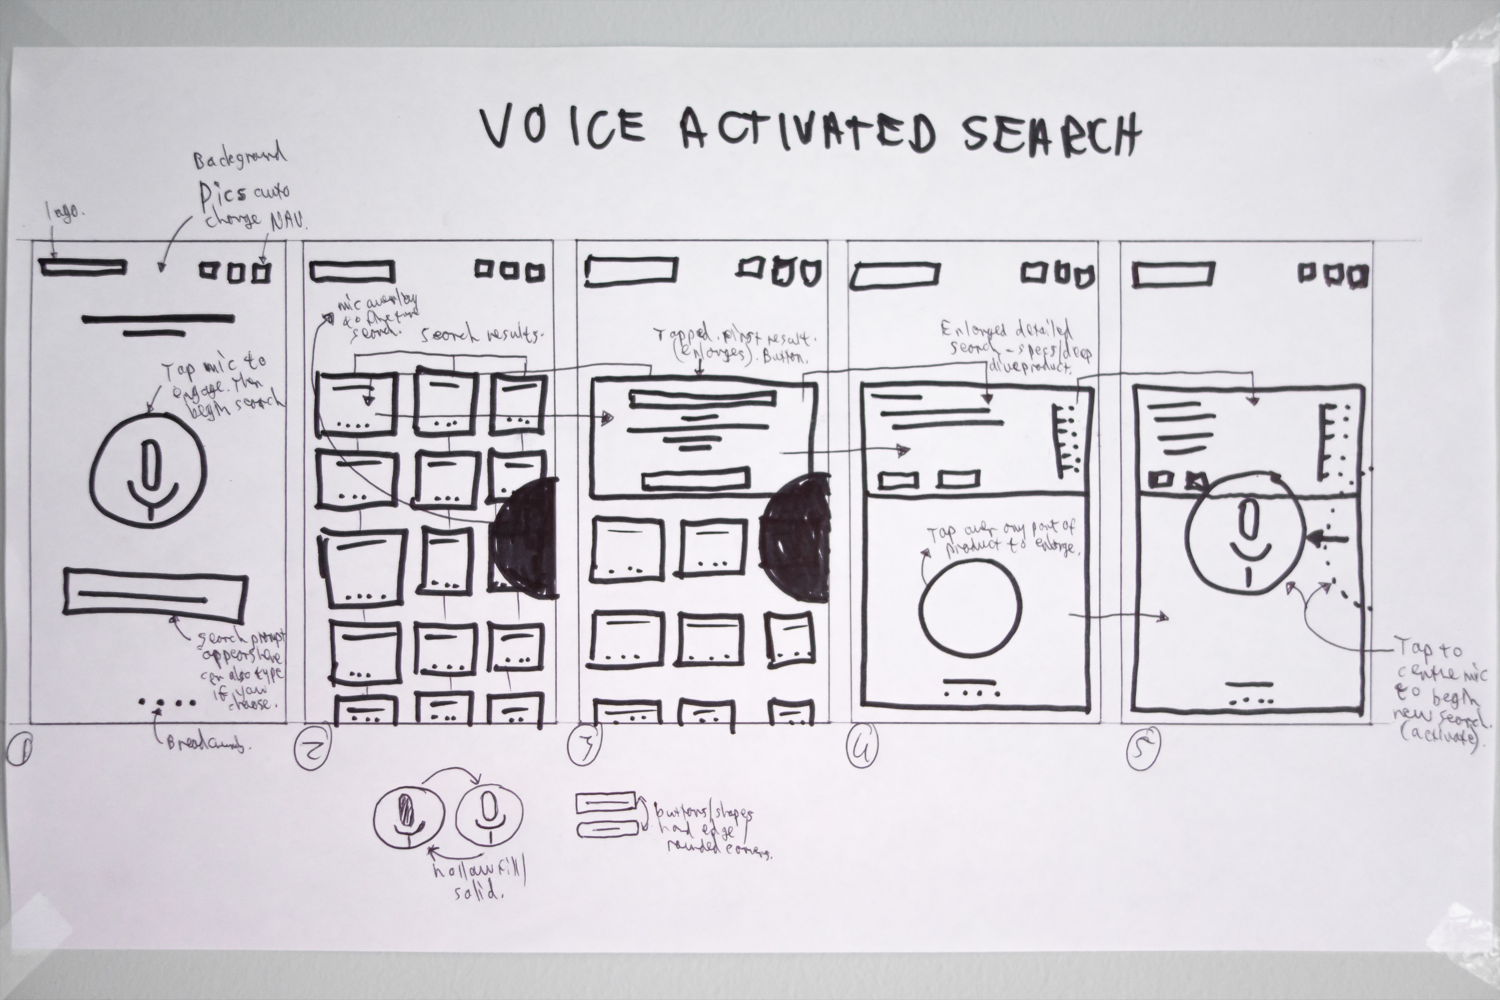 VOICE ACTIVATED SEARCH
Background
Pics auto
change
logo.
NAV.
Tap mic to
engage. Then
begin search
Search prompt
appears here
can also type
if you
choose.
Breadcrumb.
1
mic overlay
to fine tune
search.
Search results.
2
Tapped first result.
(enlarges). Button.
3
Enlarged detailed
search - specs/deep
dive product.
Tap over any part of
product to enlarge.
4
Tap to
centre mic
to begin
new search.
(activate).
5
hollow fill/
solid.
buttons/shapes
hard edge/
rounded corners.